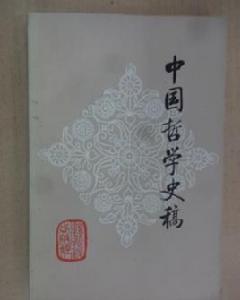 中国哲学史稿